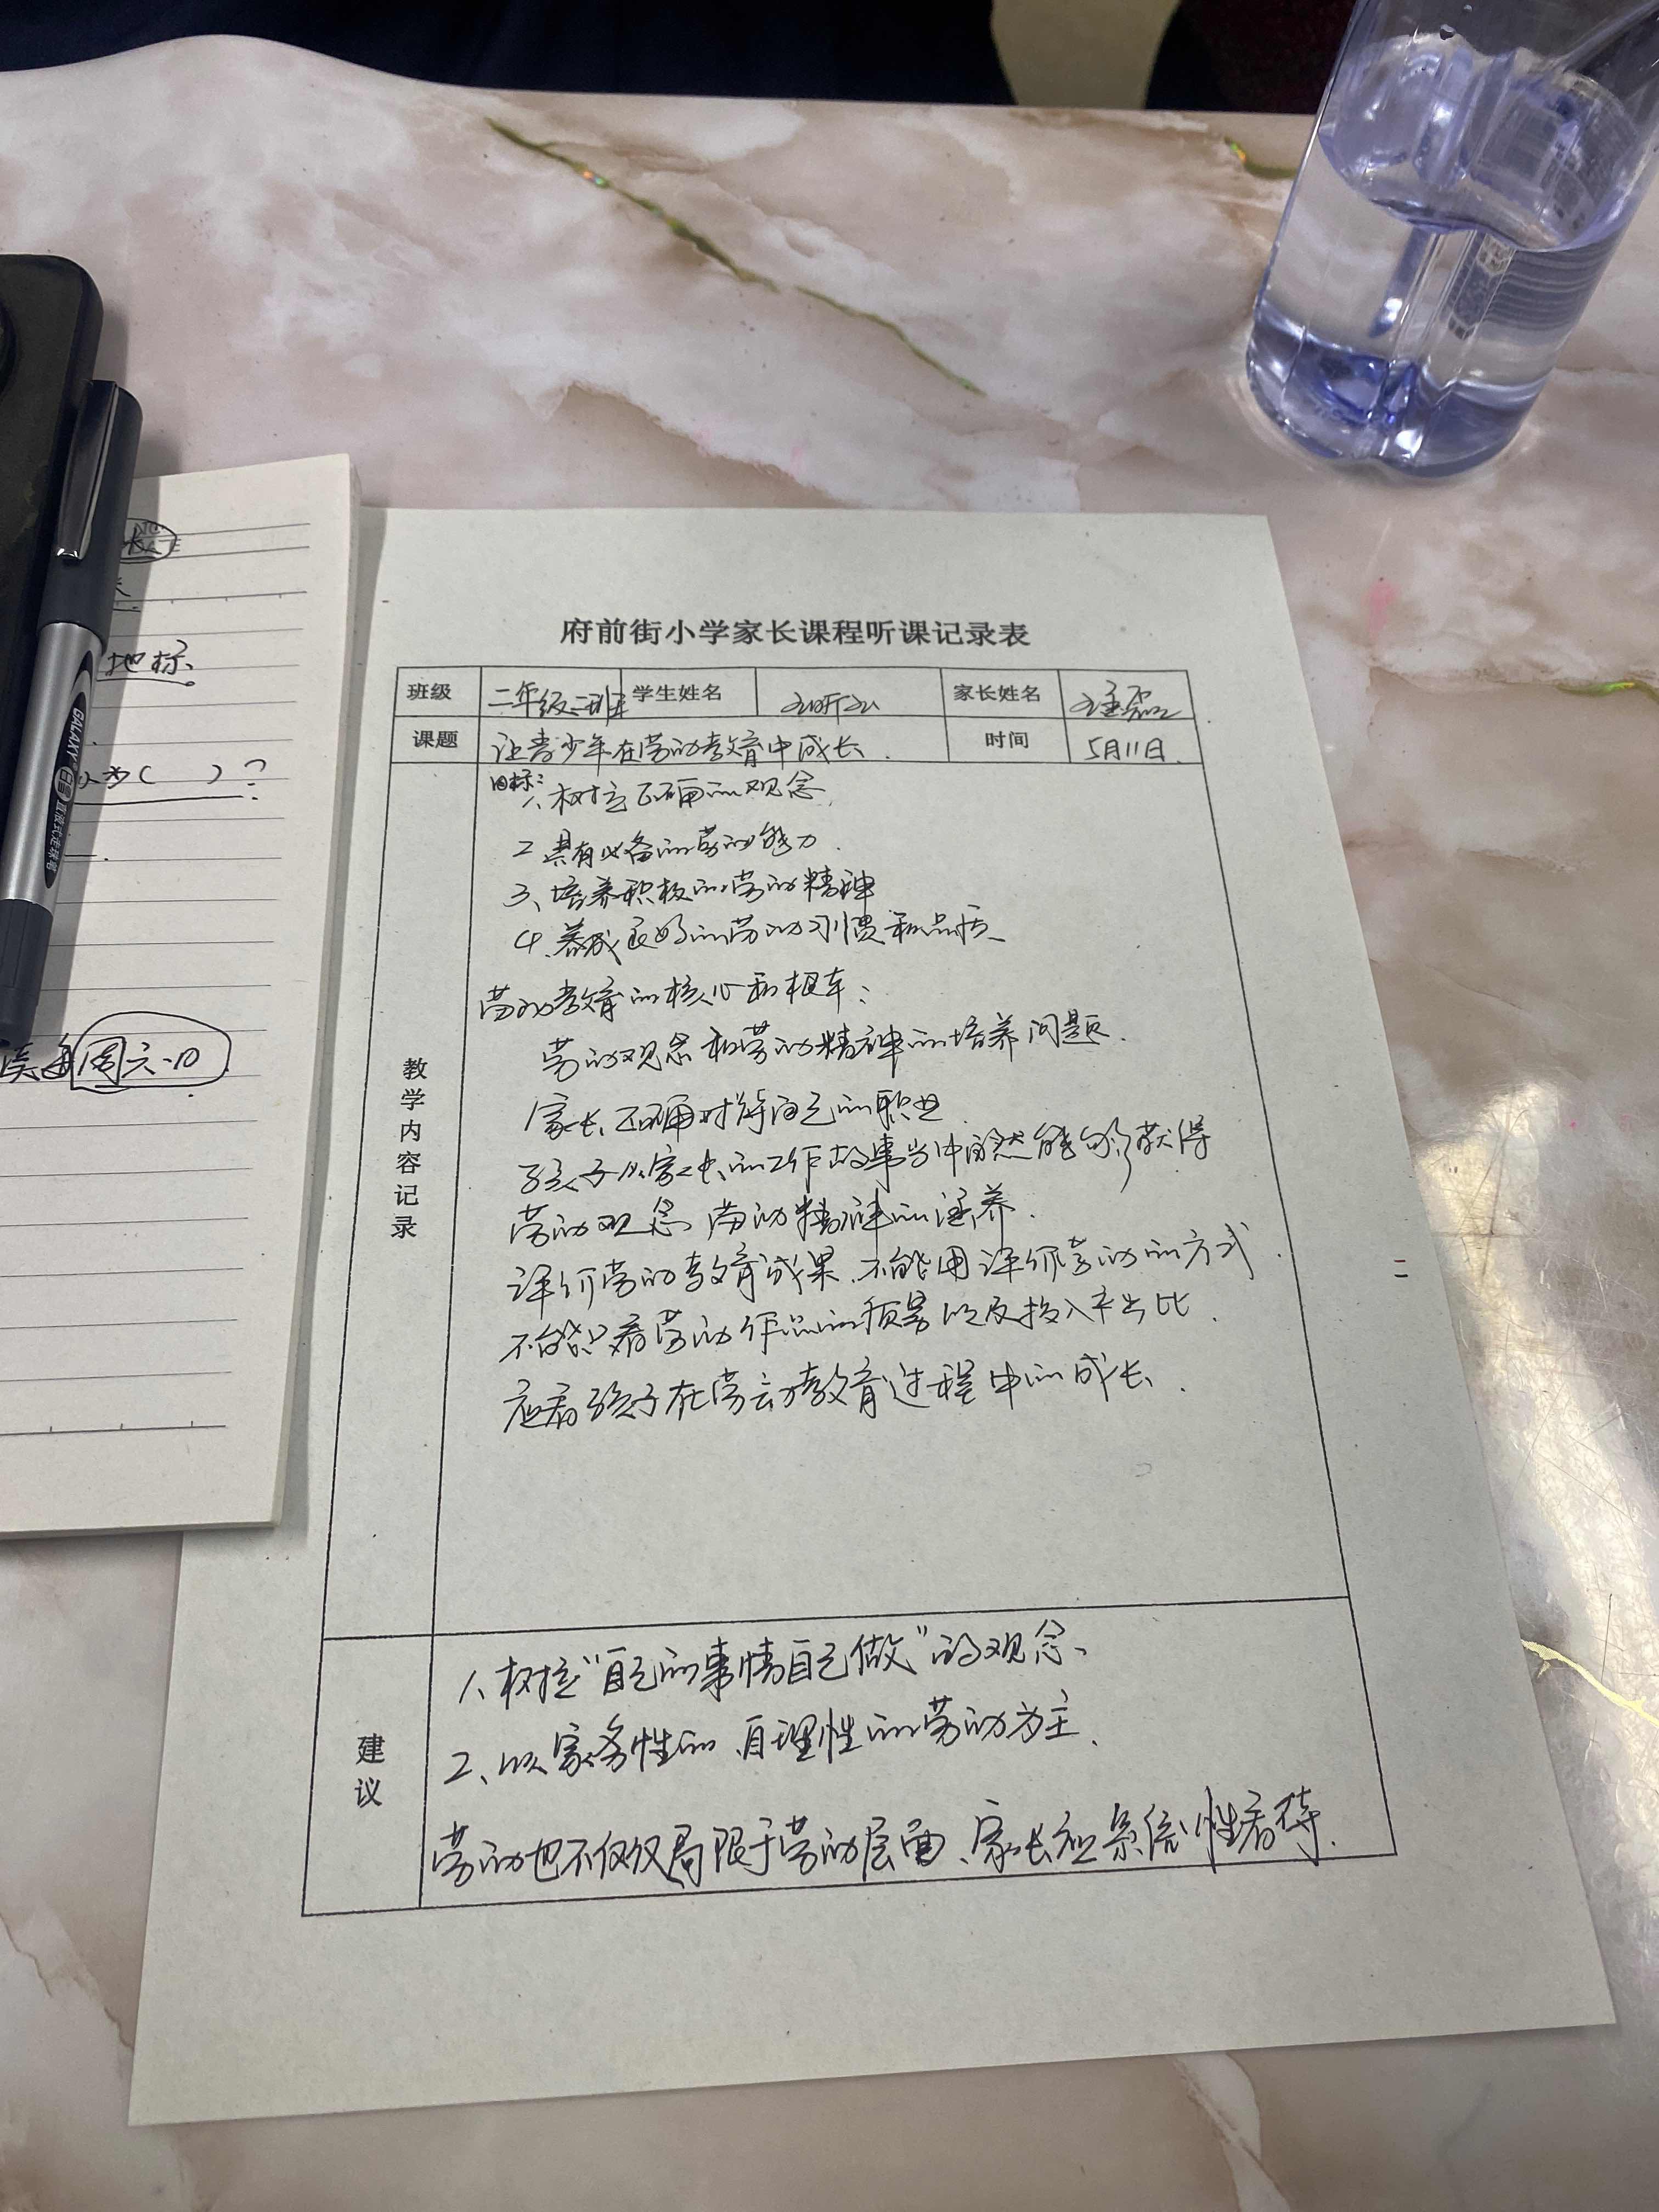 府前街小学家长课程听课记录表
班级 二年级二班 学生姓名 家长姓名
课题 让青少年在劳动教育中成长. 时间 5月11日.
目标:
1、树立正确的观念.
2 具有必备的劳动能力.
3、培养积极的劳动精神
4.养成良好的劳动习惯和品质.
劳动教育的核心和根本:
劳动观念和劳动精神的培养问题.
家长正确对待自己的职业
孩子从家长的工作故事当中自然能够获得
劳动观念 劳动精神的涵养.
评价劳动教育成果.不能用评价劳动的方式.
不能只看劳动作品的质量以及投入产出比.
应看孩子在劳动教育过程中的成长.
教学内容记录
1、树立“自己的事情自己做”的观念、
2、以家务性的、自理性的劳动为主.
劳动也不仅仅局限于劳动层面、家长应系统性看待.
建议
地标
为( )?
周六·10
GALAXY
直液式走珠笔